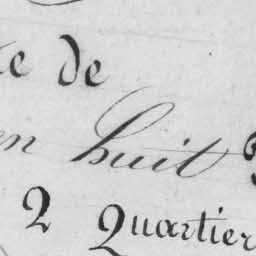 de
huit
2 Quartier